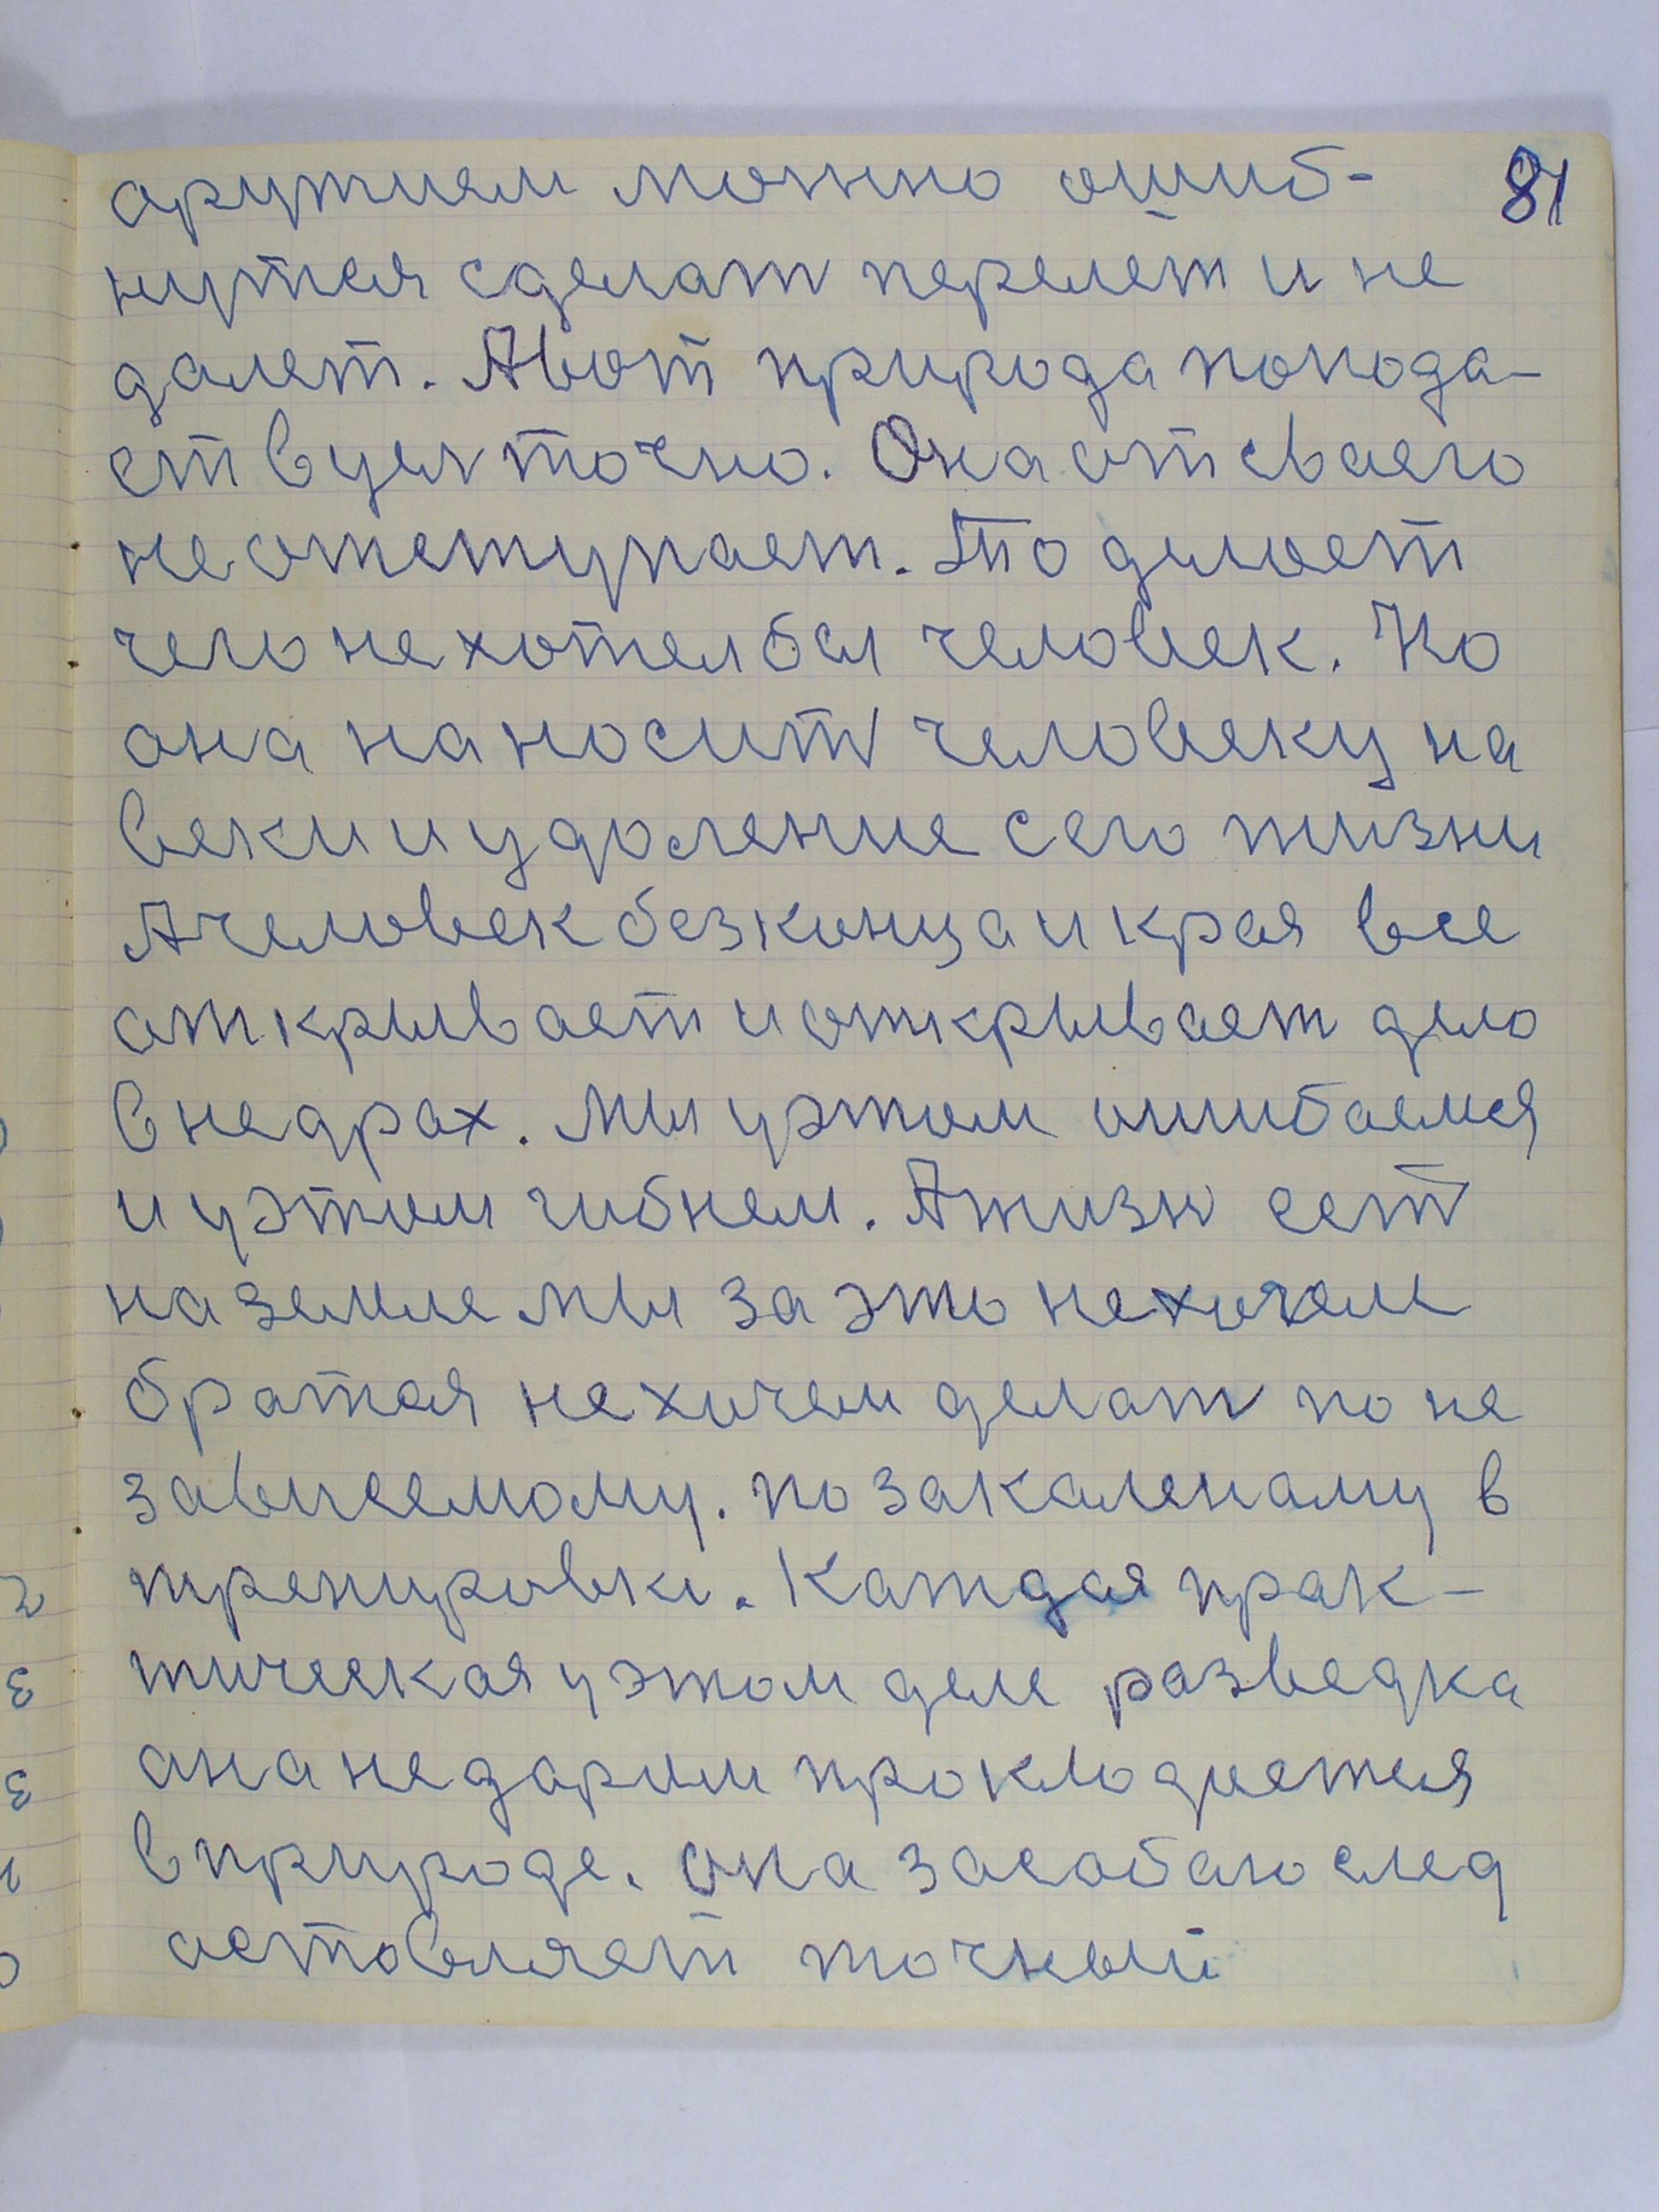 81
аружием можно ошиб-
нутся сделать перелет и не
далет. Авот природа попода-
ет вцел точно. Она от сваего
не отступает. То делоет
чего не хотел бы человек. Но
она наносить человеку на
веки и удоление с его жизни
А человек без конца и края все
открывает и открывает дело
в недрах. Мы уэтом ошибаемся
и уэтом гибнем. А жизн ест
на земле мы за это не хочем
братся не хочем делать по не
зависемому. по закаленаму в
тренировки. Каждая прак-
тическая уэтом деле разведка
она не даром проклодуется
в природе. она засобаю след
астовляет точный